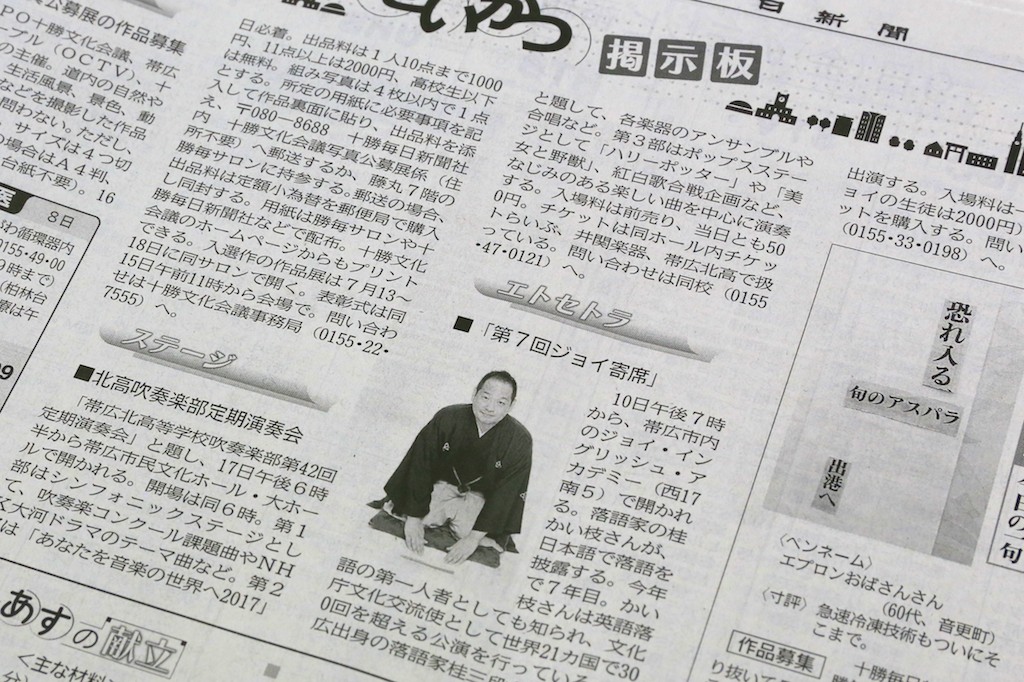 日新聞
掲示板
公募展の作品募集
PO十勝文化会議、帯広
ーブル(OCTV)、十
の主催。道内の自然や
、生活風景、景色、動
などを撮影した作品
問わない。ただし、
、サイズは4つ切
の場合はA4判、
台紙不要)。16
日必着。出品料は1人10点まで1000
円、11点以上は2000円、高校生以下
は無料。組み写真は4枚以内で1点
とする。所定の用紙に必要事項を記
入して作品裏面に貼り、出品料を添
え、〒080-8688 十勝毎日新聞社
内 十勝文化会議写真公募展係(住
所不要)へ郵送するか、藤丸7階の
勝毎サロンに持参する。郵送の場合、
出品料は定額小為替を郵便局で購入
し同封する。用紙は勝毎サロンや十
勝毎日新聞社などで配布。十勝文化
会議のホームページからもプリント
できる。入選作の作品展は7月13~
18日に同サロンで開く。表彰式は同
15日午前11時から会場で。問い合わ
せは十勝文化会議事務局(0155・22・
7555)へ。
ステージ
■北高吹奏楽部定期演奏会
「帯広北高等学校吹奏楽部第42回
定期演奏会」と題し、17日午後6時
半から帯広市民文化ホール・大ホー
ルで開かれる。開場は同6時。第1
部はシンフォニックステージとし
て、吹奏楽コンクール課題曲やNH
K大河ドラマのテーマ曲など。第2
は「あなたを音楽の世界へ2017」
と題して、各楽器のアンサンブルや
合唱など。第3部はポップスステー
ジとして「ハリーポッター」や「美
女と野獣」、紅白歌合戦企画など、
なじみのある楽しい曲を中心に演奏
する。入場料は前売り、当日とも50
0円。チケットは同ホール内チケッ
トらいぶ、井関楽器、帯広北高で扱
っている。問い合わせは同校(0155
・47・0121)へ。
エトセトラ
■「第7回ジョイ寄席」
10日午後7時
から、帯広市内
のジョイ・イン
グリッシュ・ア
カデミー(西17
南5)で開かれ
る。落語家の桂
かい枝さんが、
日本語で落語を
披露する。今年
で7年目。かい
枝さんは英語落
語の第一人者としても知られ、文化
庁文化交流使として世界21カ国で30
0回を超える公演を行っている
広出身の落語家桂三段
出演する。入場料は一
ョイの生徒は2000円)
ットを購入する。問い
(0155・33・0198)へ。
恐れ入る
旬のアスパラ
出港へ
〈ペンネーム〉
エプロンおばさんさん
(60代、音更町)
〈寸評〉急速冷凍技術もついにそ
こまで。
作品募集
十勝毎日
り抜いて
日の一句
8日
わ循環器内
0155・49・00
9時まで)
(柏林台
あすの献立
<主な材料